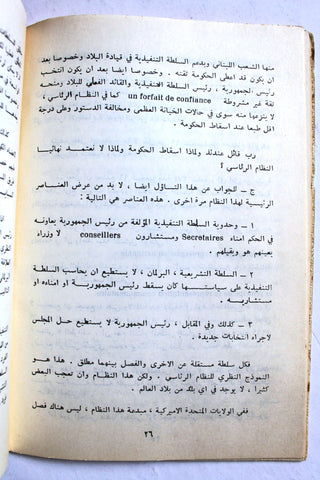 منها الشعب اللبناني ويدعم السلطة التنفيذية في قيادة البلاد وخصوصا بعد
ان يكون قد اعطى الحكومة ثقته . وخصوصا ايضا بعد ان يكون انتخب
رئيس الجمهورية ، رئيس السلطة التنفيذية والقائد الفعلي للبلاد ومنحه
ثقة غير مشروطة un forfait de confiance كما في النظام الرئاسي ،
لا ينزعها منه سوى في حالات الخيانة العظمى ومخالفة الدستور وعلى درجة
اقل طبعا عند اسقاط الحكومة .
رب قائل عندئذ ولماذا اسقاط الحكومة ولماذا لا نعتمد نهائيا
النظام الرئاسي ؟
ج — للجواب عن هذا التساؤل ايضا ، لا بد من عرض العناصر
الرئيسية لهذا النظام مرة اخرى . هذه العناصر هي التالية :
١ — وحدوية السلطة التنفيذية المؤلفة من رئيس الجمهورية يعاونه
في الحكم امناء Secretaires ومستشارون conseillers لا وزراء
يعينهم هو ويقيلهم .
٢ — السلطة التشريعية ، البرلمان ، لا يستطيع ان يحاسب السلطة
التنفيذية على سياستها كان يسقط رئيس الجمهورية او امناءه او
مستشاريه .
٣ — كذلك وفي المقابل ، رئيس الجمهورية لا يستطيع حل المجلس
لاجراء انتخابات جديدة .
فكل سلطة مستقلة عن الاخرى والفصل بينهما مطلق . هذا هو
النموذج النظري للنظام الرئاسي . ولكن هذا النظام وان تعجب البعض
كثيرا ، لا يوجد في اي بلد من بلاد العالم .
ففي الولايات المتحدة الاميركية ، مبدعة هذا النظام ، ليس هناك فصل
٢٦